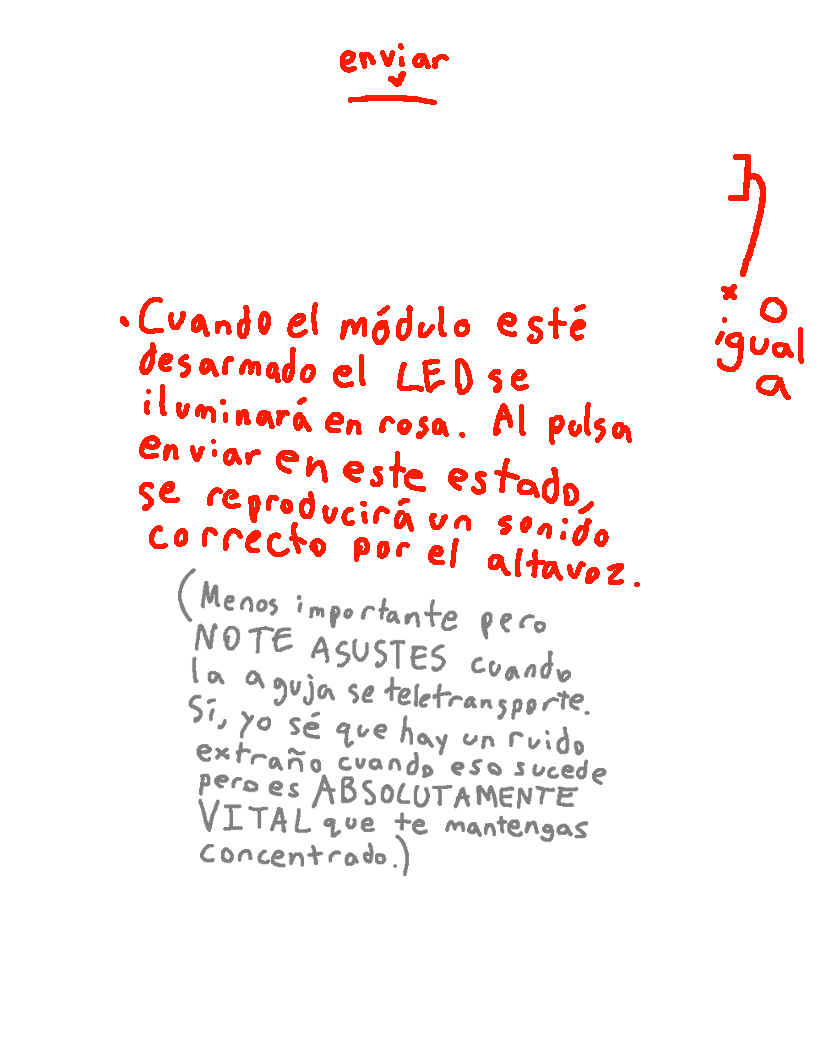 enviar
x o
igual
a
. Cuando el módulo esté
desarmado el LED se
iluminará en rosa. Al pulsa
enviar en este estado,
se reproducirá un sonido
correcto por el altavoz.
(Menos importante pero
NO TE ASUSTES cuando
la aguja se teletransporte.
Sí, yo sé que hay un ruido
extraño cuando eso sucede
pero es ABSOLUTAMENTE
VITAL que te mantengas
concentrado.)